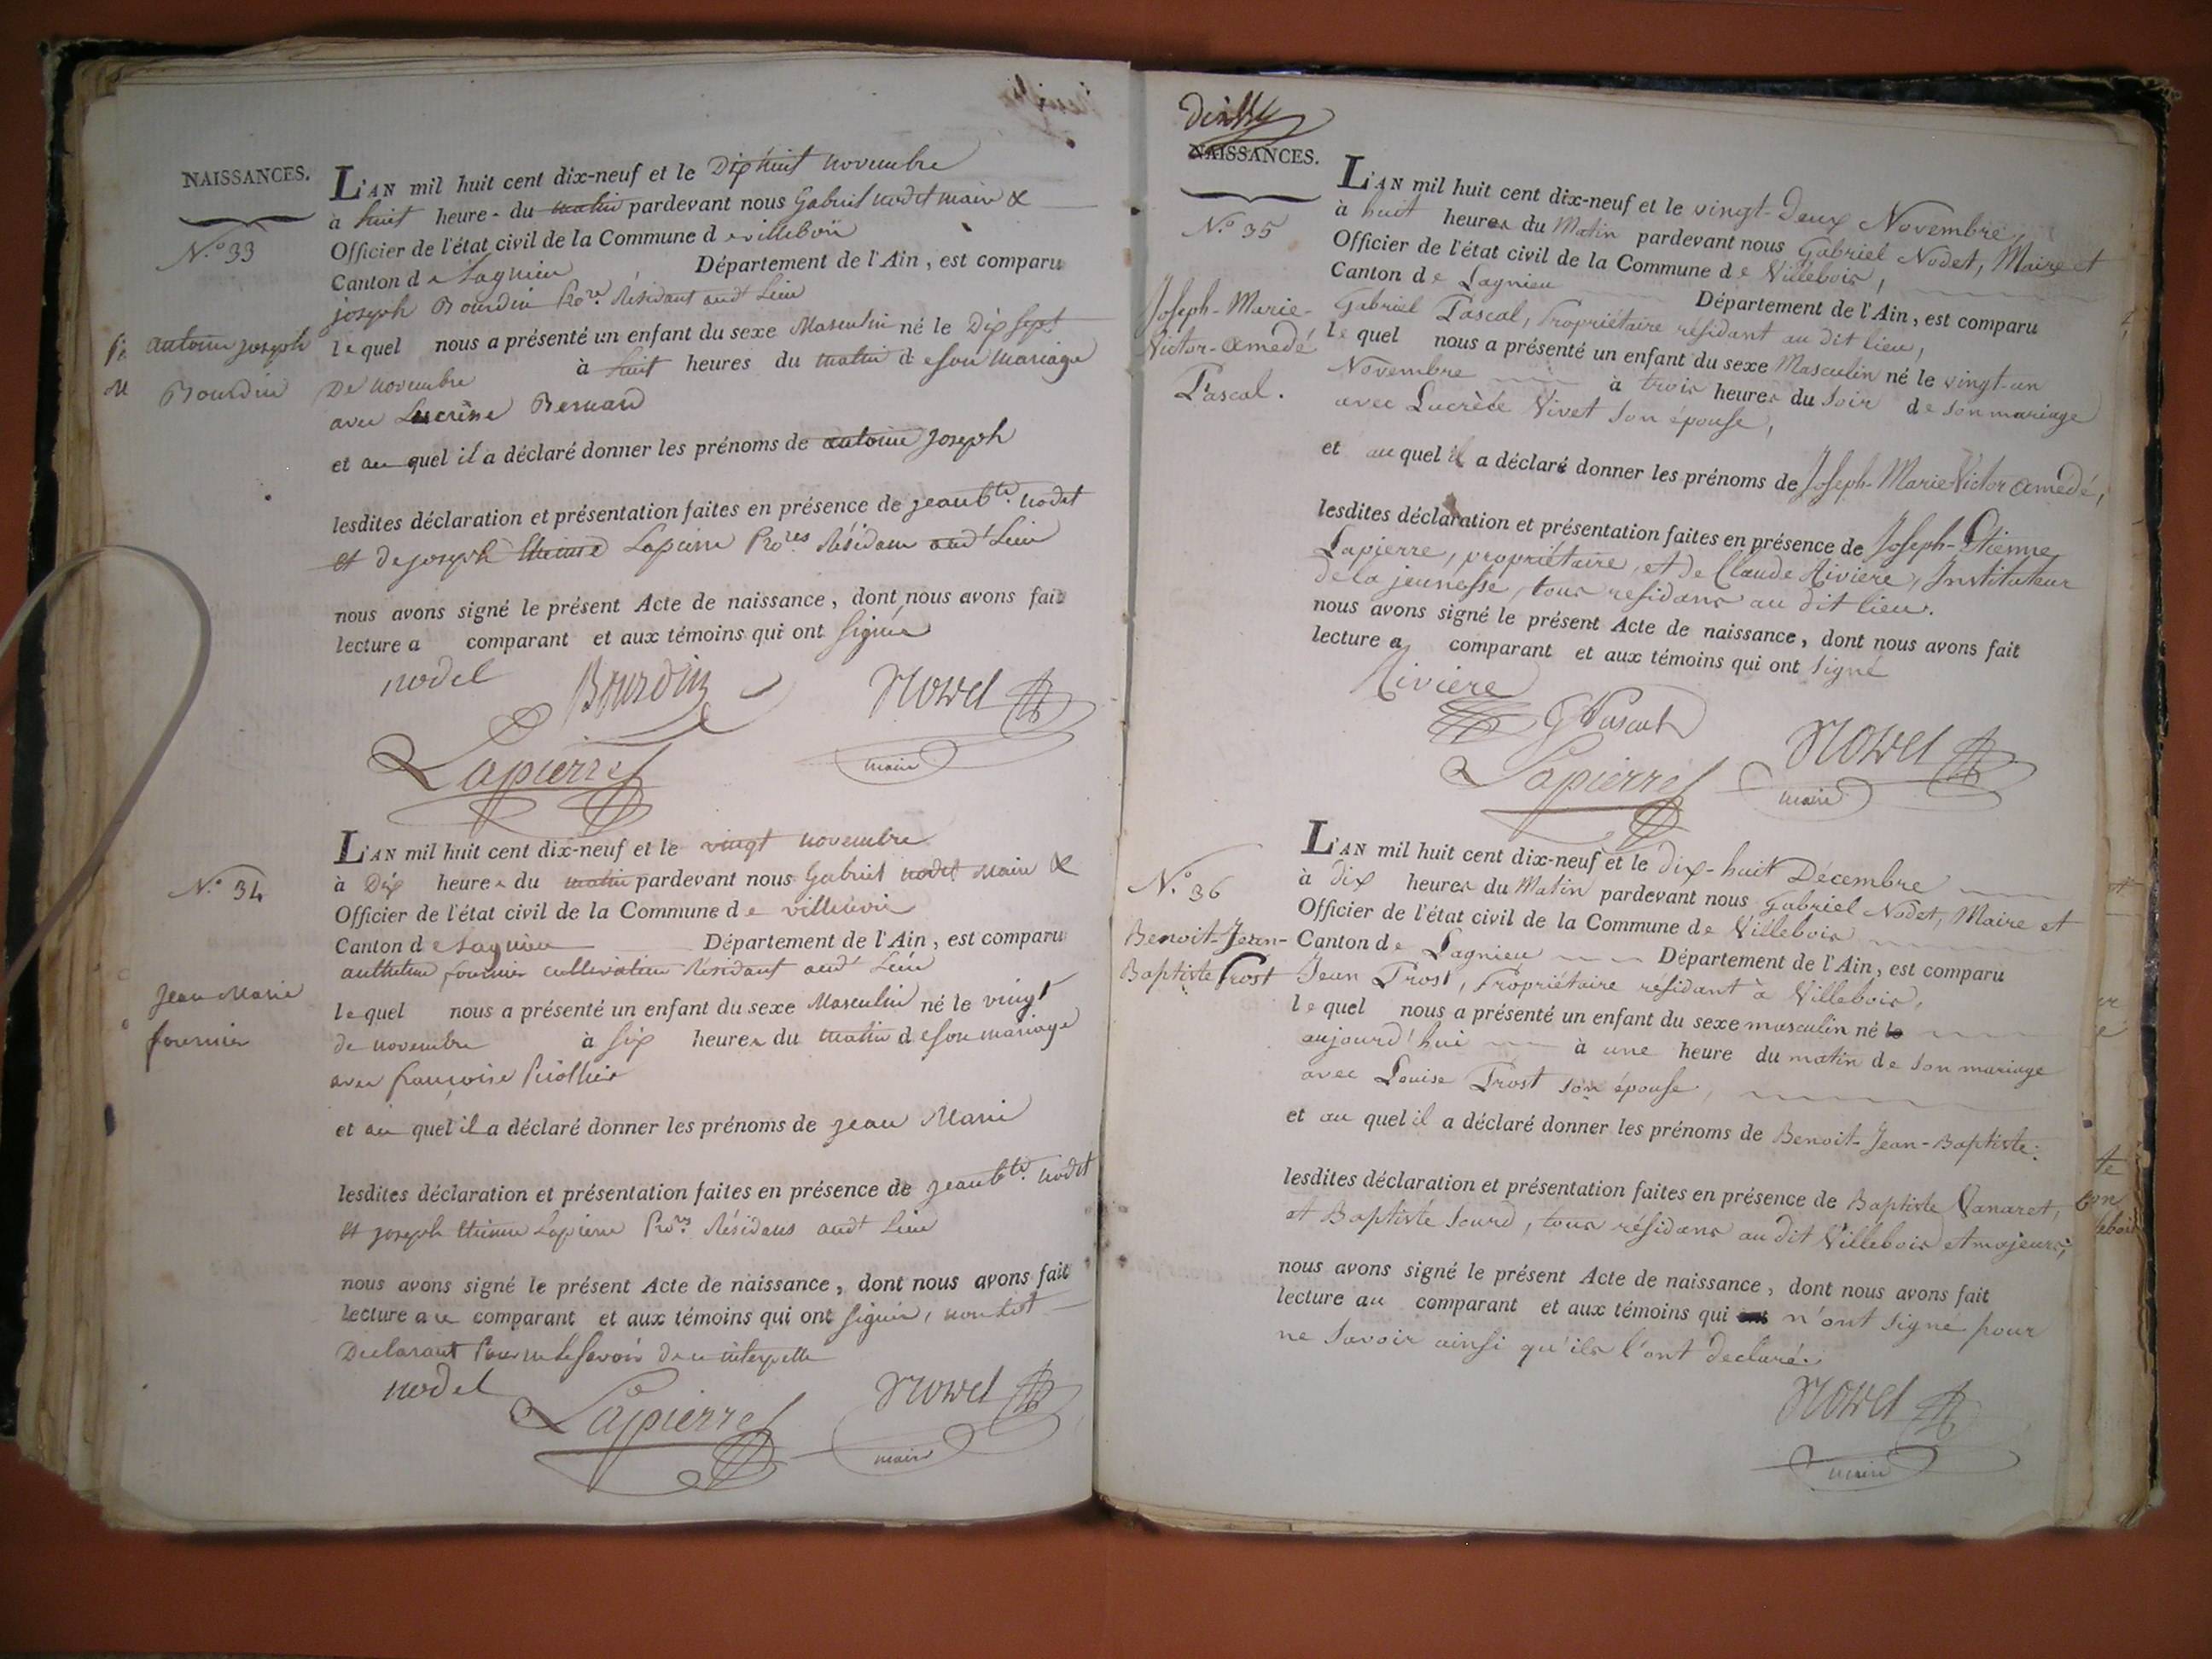 NAISSANCES.
N.º 33
antoine joseph
Bourdin
L'AN mil huit cent dix-neuf et le Dix huit novembre
à huit heure du matin pardevant nous Gabriel nodet maire &
Officier de l'état civil de la Commune de villebois
Canton de Lagnieu Département de l'Ain, est comparu
joseph Bourdin Pro.re Résidant audt Lieu
lequel nous a présenté un enfant du sexe Masculin né le Dix sept
De novembre à huit heures du matin de son mariage
avec Lucrèse Bernard
et au quel il a déclaré donner les prénoms de antoine joseph
lesdites déclaration et présentation faites en présence de jean b.te nodet
et de joseph Etienne Lapierre Pro.res Résidans audt Lieu
nous avons signé le présent Acte de naissance, dont nous avons fait
lecture a comparant et aux témoins qui ont signés
nodet Bourdin Nodet
Lapierre maire
N.º 34
Jean Marie
fournier
L'AN mil huit cent dix-neuf et le vingt novembre
à Dix heures du matin pardevant nous Gabriel nodet Maire &
Officier de l'état civil de la Commune de villebois
Canton de Lagnieu Département de l'Ain, est comparu
anthelme fournier cultivateur Résidant audt Lieu
lequel nous a présenté un enfant du sexe Masculin né le vingt
de novembre à six heures du matin de son mariage
avec françoise
et au quel il a déclaré donner les prénoms de jean Marie
lesdites déclaration et présentation faites en présence de jean b.te nodet
et joseph Etienne Lapierre Pro.res Résidans audt Lieu
nous avons signé le présent Acte de naissance, dont nous avons fait
lecture au comparant et aux témoins qui ont signés, non led.t
Declarant Pour ne le savoir de ce interpellé
nodet Lapierre Nodet
maire
NAISSANCES.
N.º 35
Joseph-Marie-
Victor-Amedé
Pascal.
L'AN mil huit cent dix-neuf et le vingt-deux Novembre,
à huit heures du Matin pardevant nous Gabriel Nodet, Maire et
Officier de l'état civil de la Commune de Villebois,
Canton de Lagnieu Département de l'Ain, est comparu
Gabriel Pascal, Propriétaire résidant au dit lieu,
lequel nous a présenté un enfant du sexe Masculin né le vingt-un
Novembre à trois heures du soir de son mariage
avec Lucrèce Vivet son épouse,
et au quel il a déclaré donner les prénoms de Joseph-Marie Victor Amedé,
lesdites déclaration et présentation faites en présence de Joseph-Etienne
Lapierre, propriétaire, et de Claude Riviere, Instituteur
de la jeunesse, tous residans au dit lieu.
nous avons signé le présent Acte de naissance, dont nous avons fait
lecture a comparant et aux témoins qui ont signé
Riviere
G Pascal
Lapierre Nodet
maire
N.º 36
Benoit-Jean-
Baptiste Trost
L'AN mil huit cent dix-neuf et le dix-huit Décembre
à dix heures du Matin pardevant nous Gabriel Nodet, Maire et
Officier de l'état civil de la Commune de Villebois
Canton de Lagnieu Département de l'Ain, est comparu
Jean Trost, Propriétaire résidant à Villebois,
lequel nous a présenté un enfant du sexe masculin né le
aujourd'hui à une heure du matin de son mariage
avec Louise Trost son épouse,
et au quel il a déclaré donner les prénoms de Benoit-Jean-Baptiste.
lesdites déclaration et présentation faites en présence de Baptiste Vanaret,
et Baptiste Sourd, tous résidans au dit Villebois et majeurs;
nous avons signé le présent Acte de naissance, dont nous avons fait
lecture au comparant et aux témoins qui ont n'ont signe pour
ne savoir ainsi qu'ils l'ont declaré.
Nodet
maire